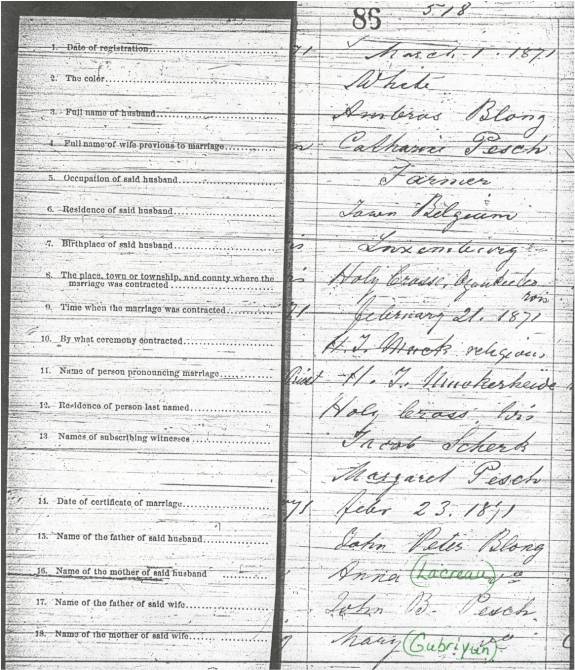 86 518
1. Date of registration 71 March 1. 1871
2. The color White
3. Full name of husband Ambros Blong
4. Full name of wife previous to marriage Catharine Pesch
5. Occupation of said husband Farmer
6. Residence of said husband Town Belgium
7. Birthplace of said husband is Luxemburg
8. The place, town or township, and county where the
marriage was contracted is Holy Cross, Ozaukee Co
Wis
9. Time when the marriage was contracted 71 February 21. 1871
10. By what ceremony contracted H.T. Muck religious
11. Name of person pronouncing marriage Priest H. T.
12. Residence of person last named Holy Cross Wis
13 Names of subscribing witnesses Jacob Scherk
Margaret Pesch
14. Date of certificate of marriage 71 Febr 23. 1871
15. Name of the father of said husband John Peter Blong
16. Name of the mother of said husband Anna (Lacreau)
17. Name of the father of said wife John B. Pesch
18. Name of the mother of said wife Mary (Gubriyun)